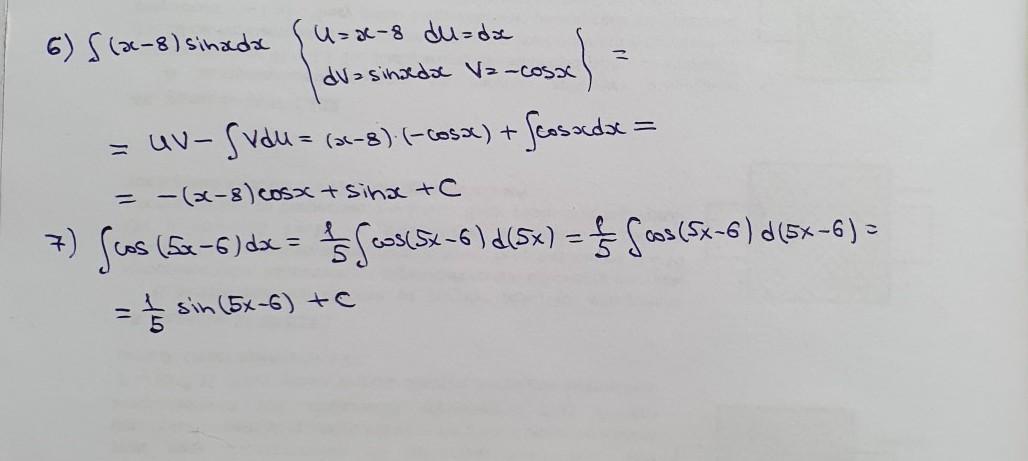 6) ∫(x-8) sinxdx { u=x-8 du=dx
dV=sinxdx V=-cosx } =
= uv - ∫vdu = (x-8)·(-cosx) + ∫cosxdx =
= -(x-8)cosx + sinx + C
7) ∫cos (5x-6)dx = 1/5 ∫cos(5x-6) d(5x) = 1/5 ∫cos(5x-6) d(5x-6) =
= 1/5 sin(5x-6) + C